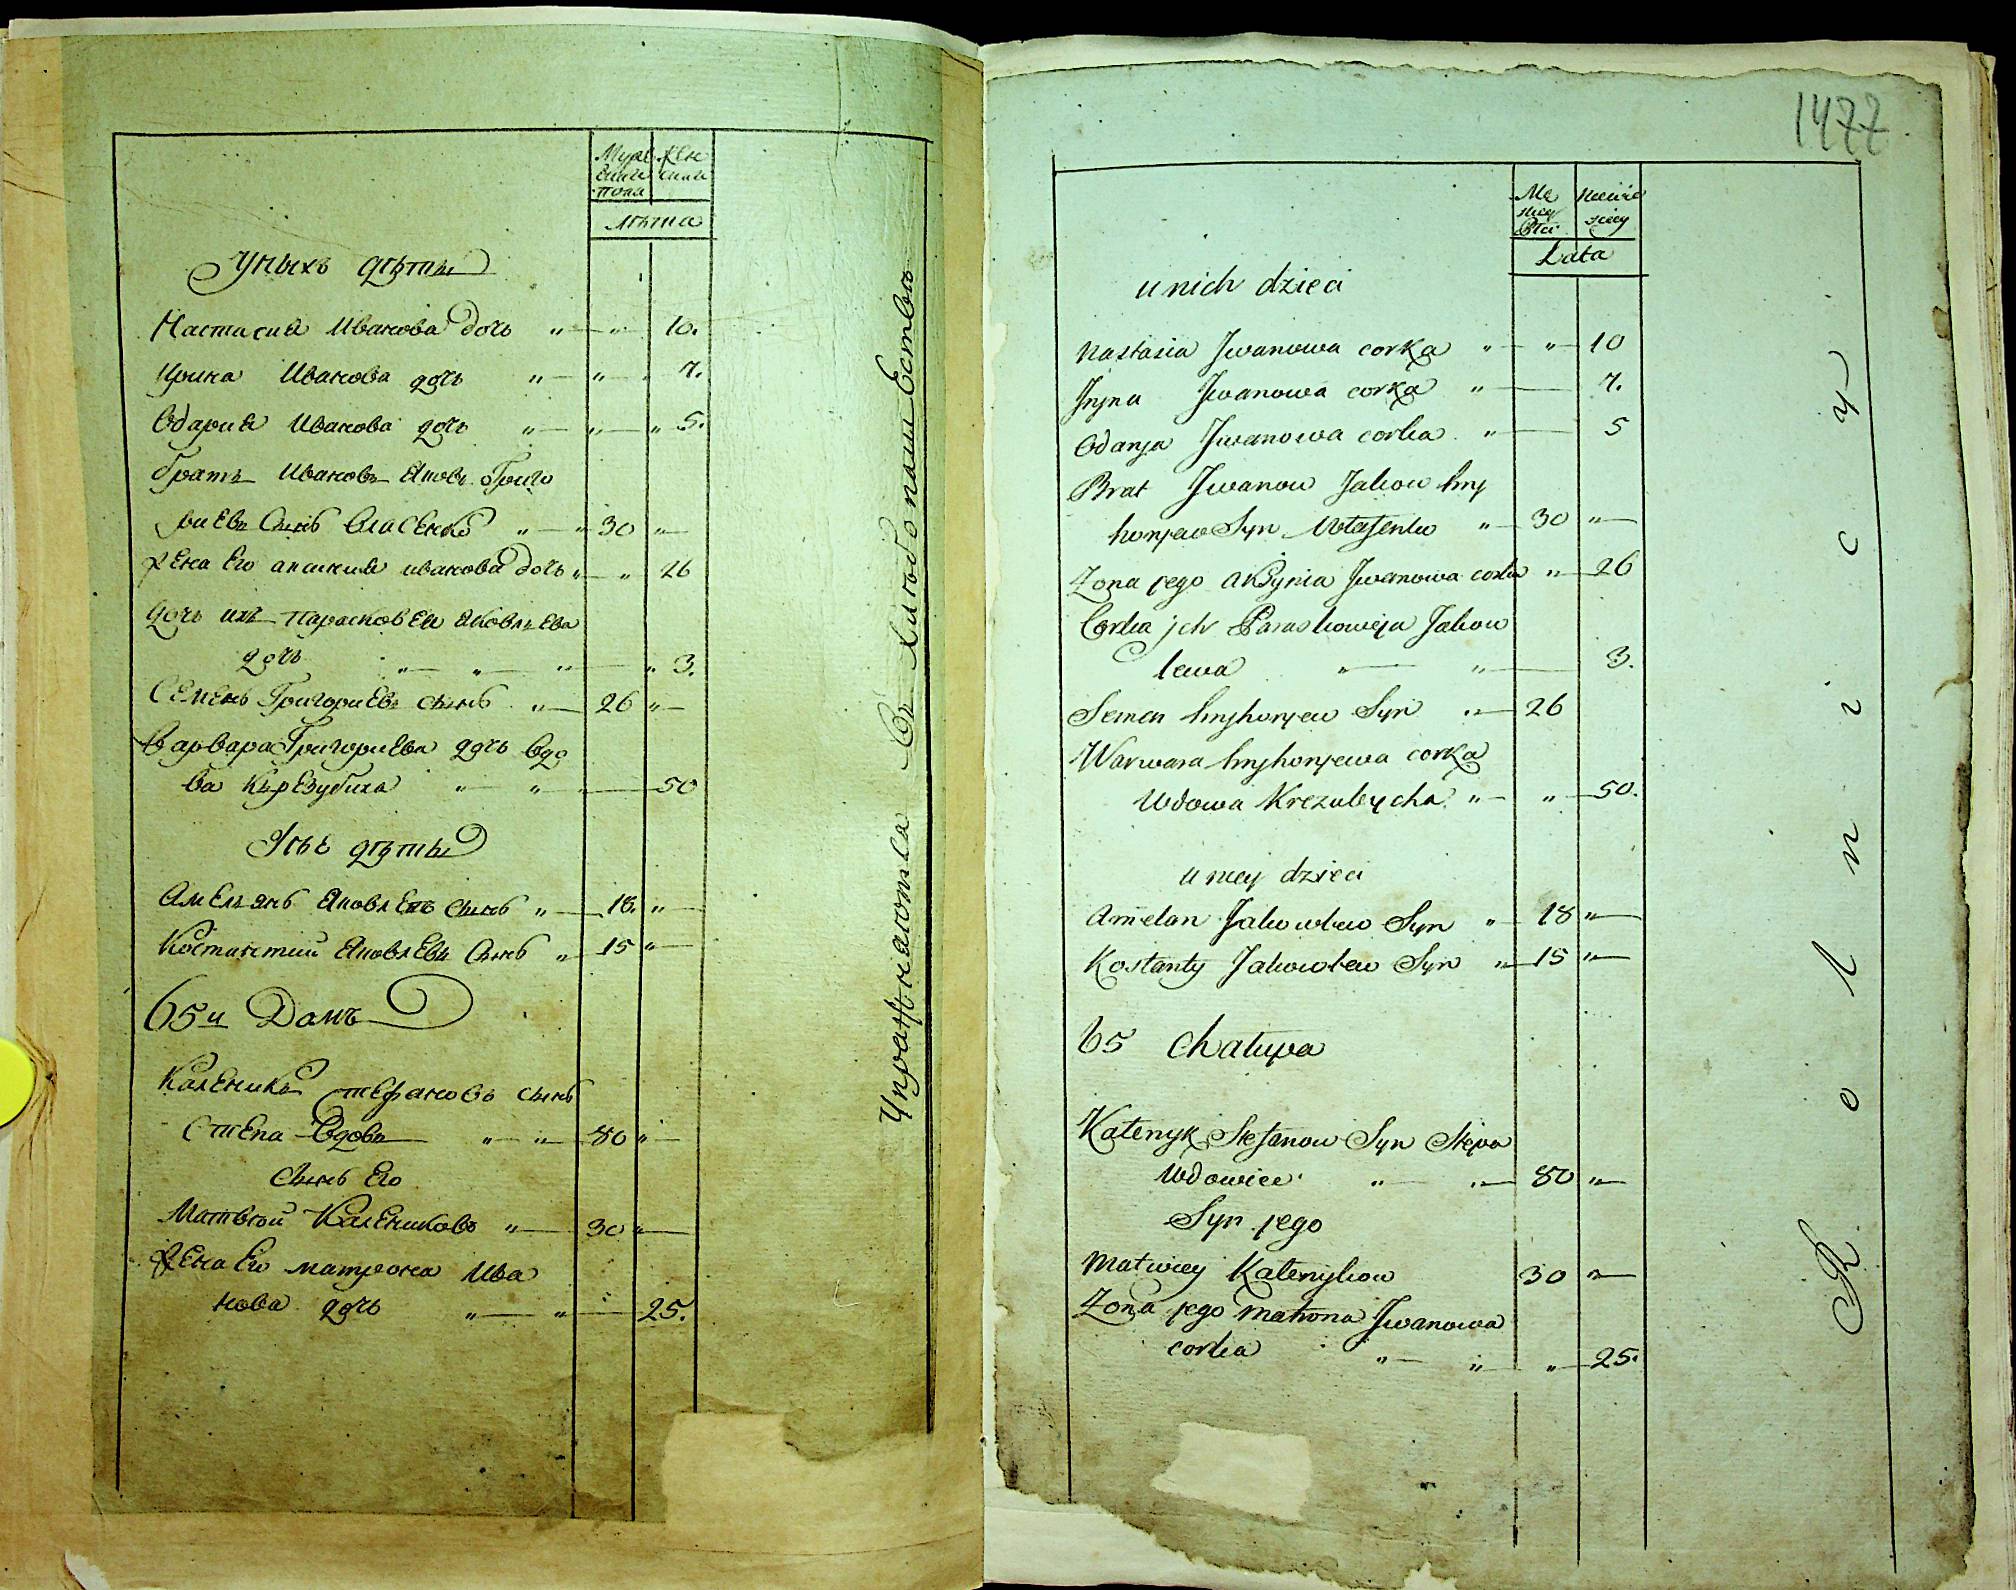 Муже Жен
ским ским
пола
лѣта
Уныхъ дѣти
Настасия Иванова дочь " " 10.
Ирина Иванова дочь " " 7.
Одария Иванова дочь " " " 5.
братъ Ивановъ Яковъ Григо
риевъ Сынъ Власенко " " 30 "
Жена Его аксиния иванова дочь " " 26
дочь ихъ парасковея яковлева
дочь " " " " 3.
Семенъ Григориевъ сынъ " 26 "
Варвара Григориева дочь вдо
ва Кърезубиха " " 50
Унее дѣти
Амельянъ Яковлевъ сынъ " 18. "
Костантий Яковлевъ Сынъ " 15 "
65й Домъ
Каленикъ Стефановъ сынъ
Степа вдовъ " " 80 "
Сынъ Его
Матвѣй Калениковъ " 30 "
Жена Его матрона Ива
нова дочь " " 25.
Упражнаютса Въ хлѣбопашествѣ
1477
Mę
skiey
Płci
niewie
sciey
Lata
u nich dzieci
Nastasia Jwanowa corka " " 10
Jryna Jwanowa corka " 7.
Odarya Jwanowa corka " 5
Brat Jwanow Jakow hry
horyew Syn Własenko " 30 "
Żona jego aксynia Jwanowa corka " 26
Corka jch Paraskoweja Jakow
lewa " " 3.
Semen hryhoryew Syn " 26
Warwara hryhoryewa corka
Wdowa Krezubycha " " 50.
u niey dzieci
Amelan Jakowlew Syn " 18 "
Kostanty Jakowlew Syn " 15 "
65 Chałupa
Kalenyk Stefanow Syn Stepa
Wdowiec " " 80 "
Syn jego
Matwiey Kalenykow 30 "
Żona jego Matrona Jwanowa
corka " " " 25.
Rolnicy